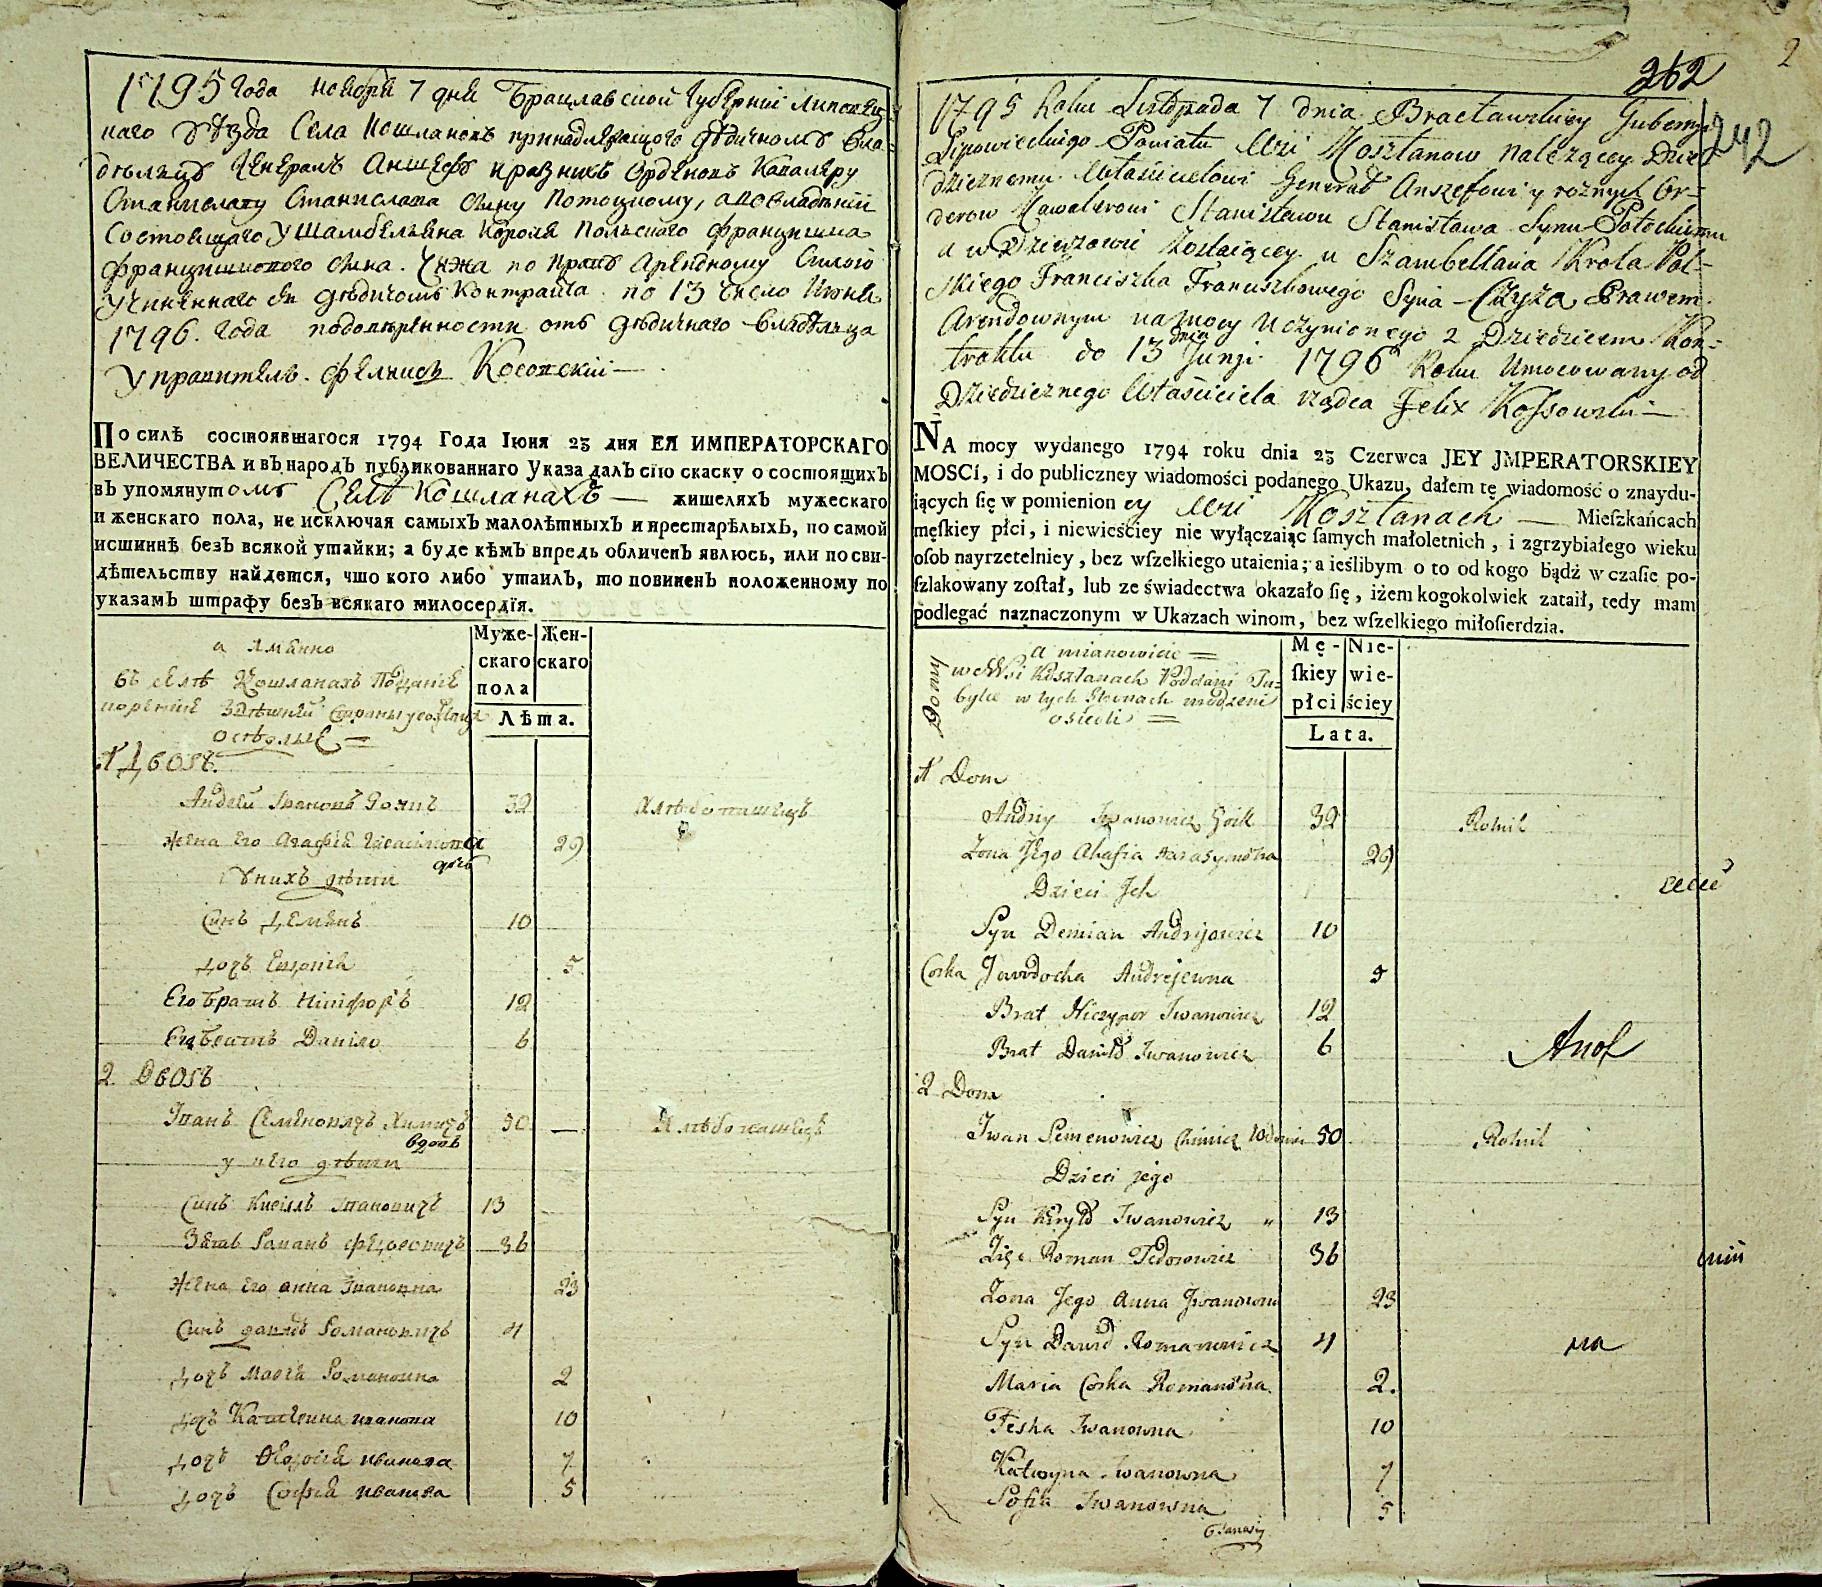 1795 Года ноября 7 дня Брацлавской Губернии Липовец-
каго уѣзда Села Кошланокъ принадлежащого дѣдичному вла-
дѣльцу Генералъ Аншефу и разнихъ Орденовъ Кавалеру
Станиславу Станислава сыну Потоцкому, а во владѣнии
состоящаго у Шамбеляна Короля Польского Францишка
Францишкового сына Чижа по праву Арендному силою
учиненнаго съ дѣдичомъ Контракта по 13 число Июня
1796. Года по довѣренности отъ дѣдичнаго владѣльца
Управитель Феликсъ Косовский
По силѣ состоявшагося 1794 Года Іюня 23 дня ЕЯ ИМПЕРАТОРСКАГО
ВЕЛИЧЕСТВА и въ народъ публикованнаго Указа далъ сію скаску о состоящихъ
въ упомянутомъ Селѣ Кошланахъ — жителяхъ мужескаго
и женскаго пола, не исключая самыхъ малолѣтныхъ и престарѣлыхъ, по самой
истиннѣ безъ всякой утайки; а буде кѣмъ впредь обличенъ явлюсь, или по сви-
дѣтельству найдется, что кого либо утаилъ, то повиненъ положенному по
указамъ штрафу безъ всякаго милосердїя.
а имянно
въ селѣ Кошланахъ
Муже-
скаго
пола
Жен-
скаго
Лѣта.
1 Дворъ
Андрей Ивановъ 32 Хлѣбопашецъ
Жена Его Агафія 29
У нихъ дѣти
Синъ Демянъ 10
Дочь Евдокія 5
Его Братъ Никифоръ 12
Его Братъ Данило 6
2 Дворъ
Иванъ Семеновичъ Химичъ вдовъ 50 — Хлѣбопашецъ
у него дѣти
Синъ Кирилъ Ивановичъ 13
Зять Романъ Федоровичъ 36
Жена Его Анна Ивановна 23
Синъ Давидъ Романовичъ 4
Дочь Марія Романовна 2
Дочь Катерина Иванова 10
Дочь Феодосія Иванова 7
Дочь Софія Иванова 5
2
262
242
1795 Roku Listopada 7 dnia Bracławskiey Gubernii
Lipowieckiego Powiatu Wsi Kosztanow należącey Dzie-
dzicznemu Właścicielowi Generał Anszefowi y roznych Or-
derow Kawalerowi Stanisławu Stanisława Synu Potockiemu
a w Dzierżawie zostaiącey u Szambellana Krola Pol-
skiego Franciszka Franciszkowego Syna Czyża Prawem
Arendownym na mocy Uczynionego z Dziedzicem Kon-
traktu do 13 dnia Junji 1796 Roku Umocowany od
Dziedzicznego Właściciela rządca Felix Kossowski —
NA mocy wydanego 1794 roku dnia 23 Czerwca JEY JMPERATORSKIEY
MOSCI, i do publiczney wiadomości podanego Ukazu, dałem tę wiadomość o znaydu-
iących się w pomienioney Wsi Kosztanach — Mieſzkańcach
męſkiey płci, i niewieściey nie wyłączaiąc ſamych małoletnich, i zgrzybiałego wieku
oſob nayrzetelniey, bez wſzelkiego utaienia; a ieślibym o to od kogo bądź w czaſie po-
ſzlakowany zoſtał, lub ze świadectwa okazało ſię, iżem kogokolwiek zataił, tedy mam
podlegać naznaczonym w Ukazach winom, bez wſzelkiego miłoſierdzia.
Domy
a mianowicie
we Wsi Kosztanach Poddani Tu-
bylce w tych Stronach urodzeni
osiedli
Mę-
ſkiey
płci
Nie-
wie-
ściey
Lata.
1 Dom
Andriy Iwanowicz 32 Rolnik
Żona Jego Ahafia Harasymowna 29
Dzieci Ich
Syn Demian Andrijowicz 10
Corka Jawdocha Andrejewna 5
Brat Niczypor Iwanowicz 12
Brat Daniło Iwanowicz 6
2 Dom
Iwan Semenowicz Chimicz Wdowiec 50 Rolnik
Dzieci jego
Syn Kiryło Iwanowicz 13
Zięć Roman Fedorowicz 36
Żona Jego Anna Iwanowna 23
Syn Dawid Romanowicz 4
Maria Corka Romanowna 2.
Feska Iwanowna 10
Katerzyna Iwanowna 7
Sofia Iwanowna 5